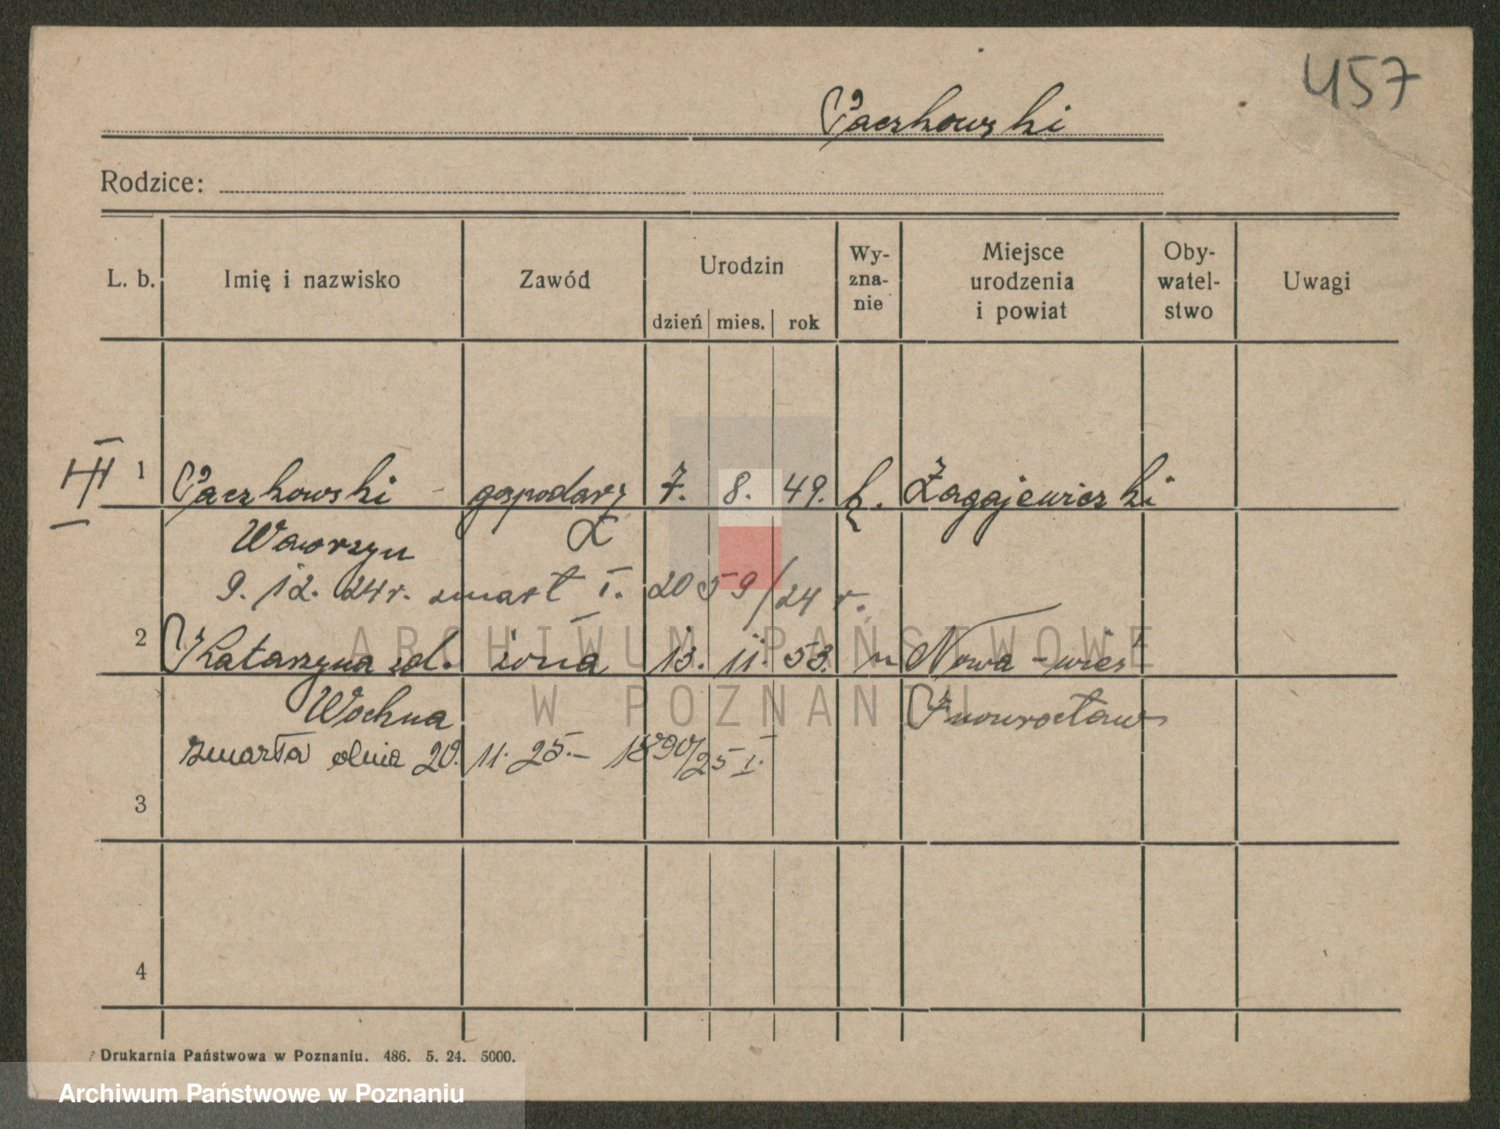 457
Paczkowski
Rodzice:
L. b. Imię i nazwisko Zawód Urodzin dzień mies. rok Wy-zna-nie Miejsce urodzenia i powiat Oby-watel-stwo Uwagi
III 1 Paczkowski gospodarz 7. 8. 49. k. Zagajewiczki
Wawrzyn
9. 12. 24 r. zmarł I. 2059/24 r.
2 Katarzyna zd. żona 13. 11. 53. " Nowa-wieś
Wochna Inowrocław
zmarła dnia 20. 11. 25.- 1890/25 I.
3
4
Drukarnia Państwowa w Poznaniu. 486. 5. 24. 5000.
ARCHIWUM PAŃSTWOWE
W POZNANIU
Archiwum Państwowe w Poznaniu